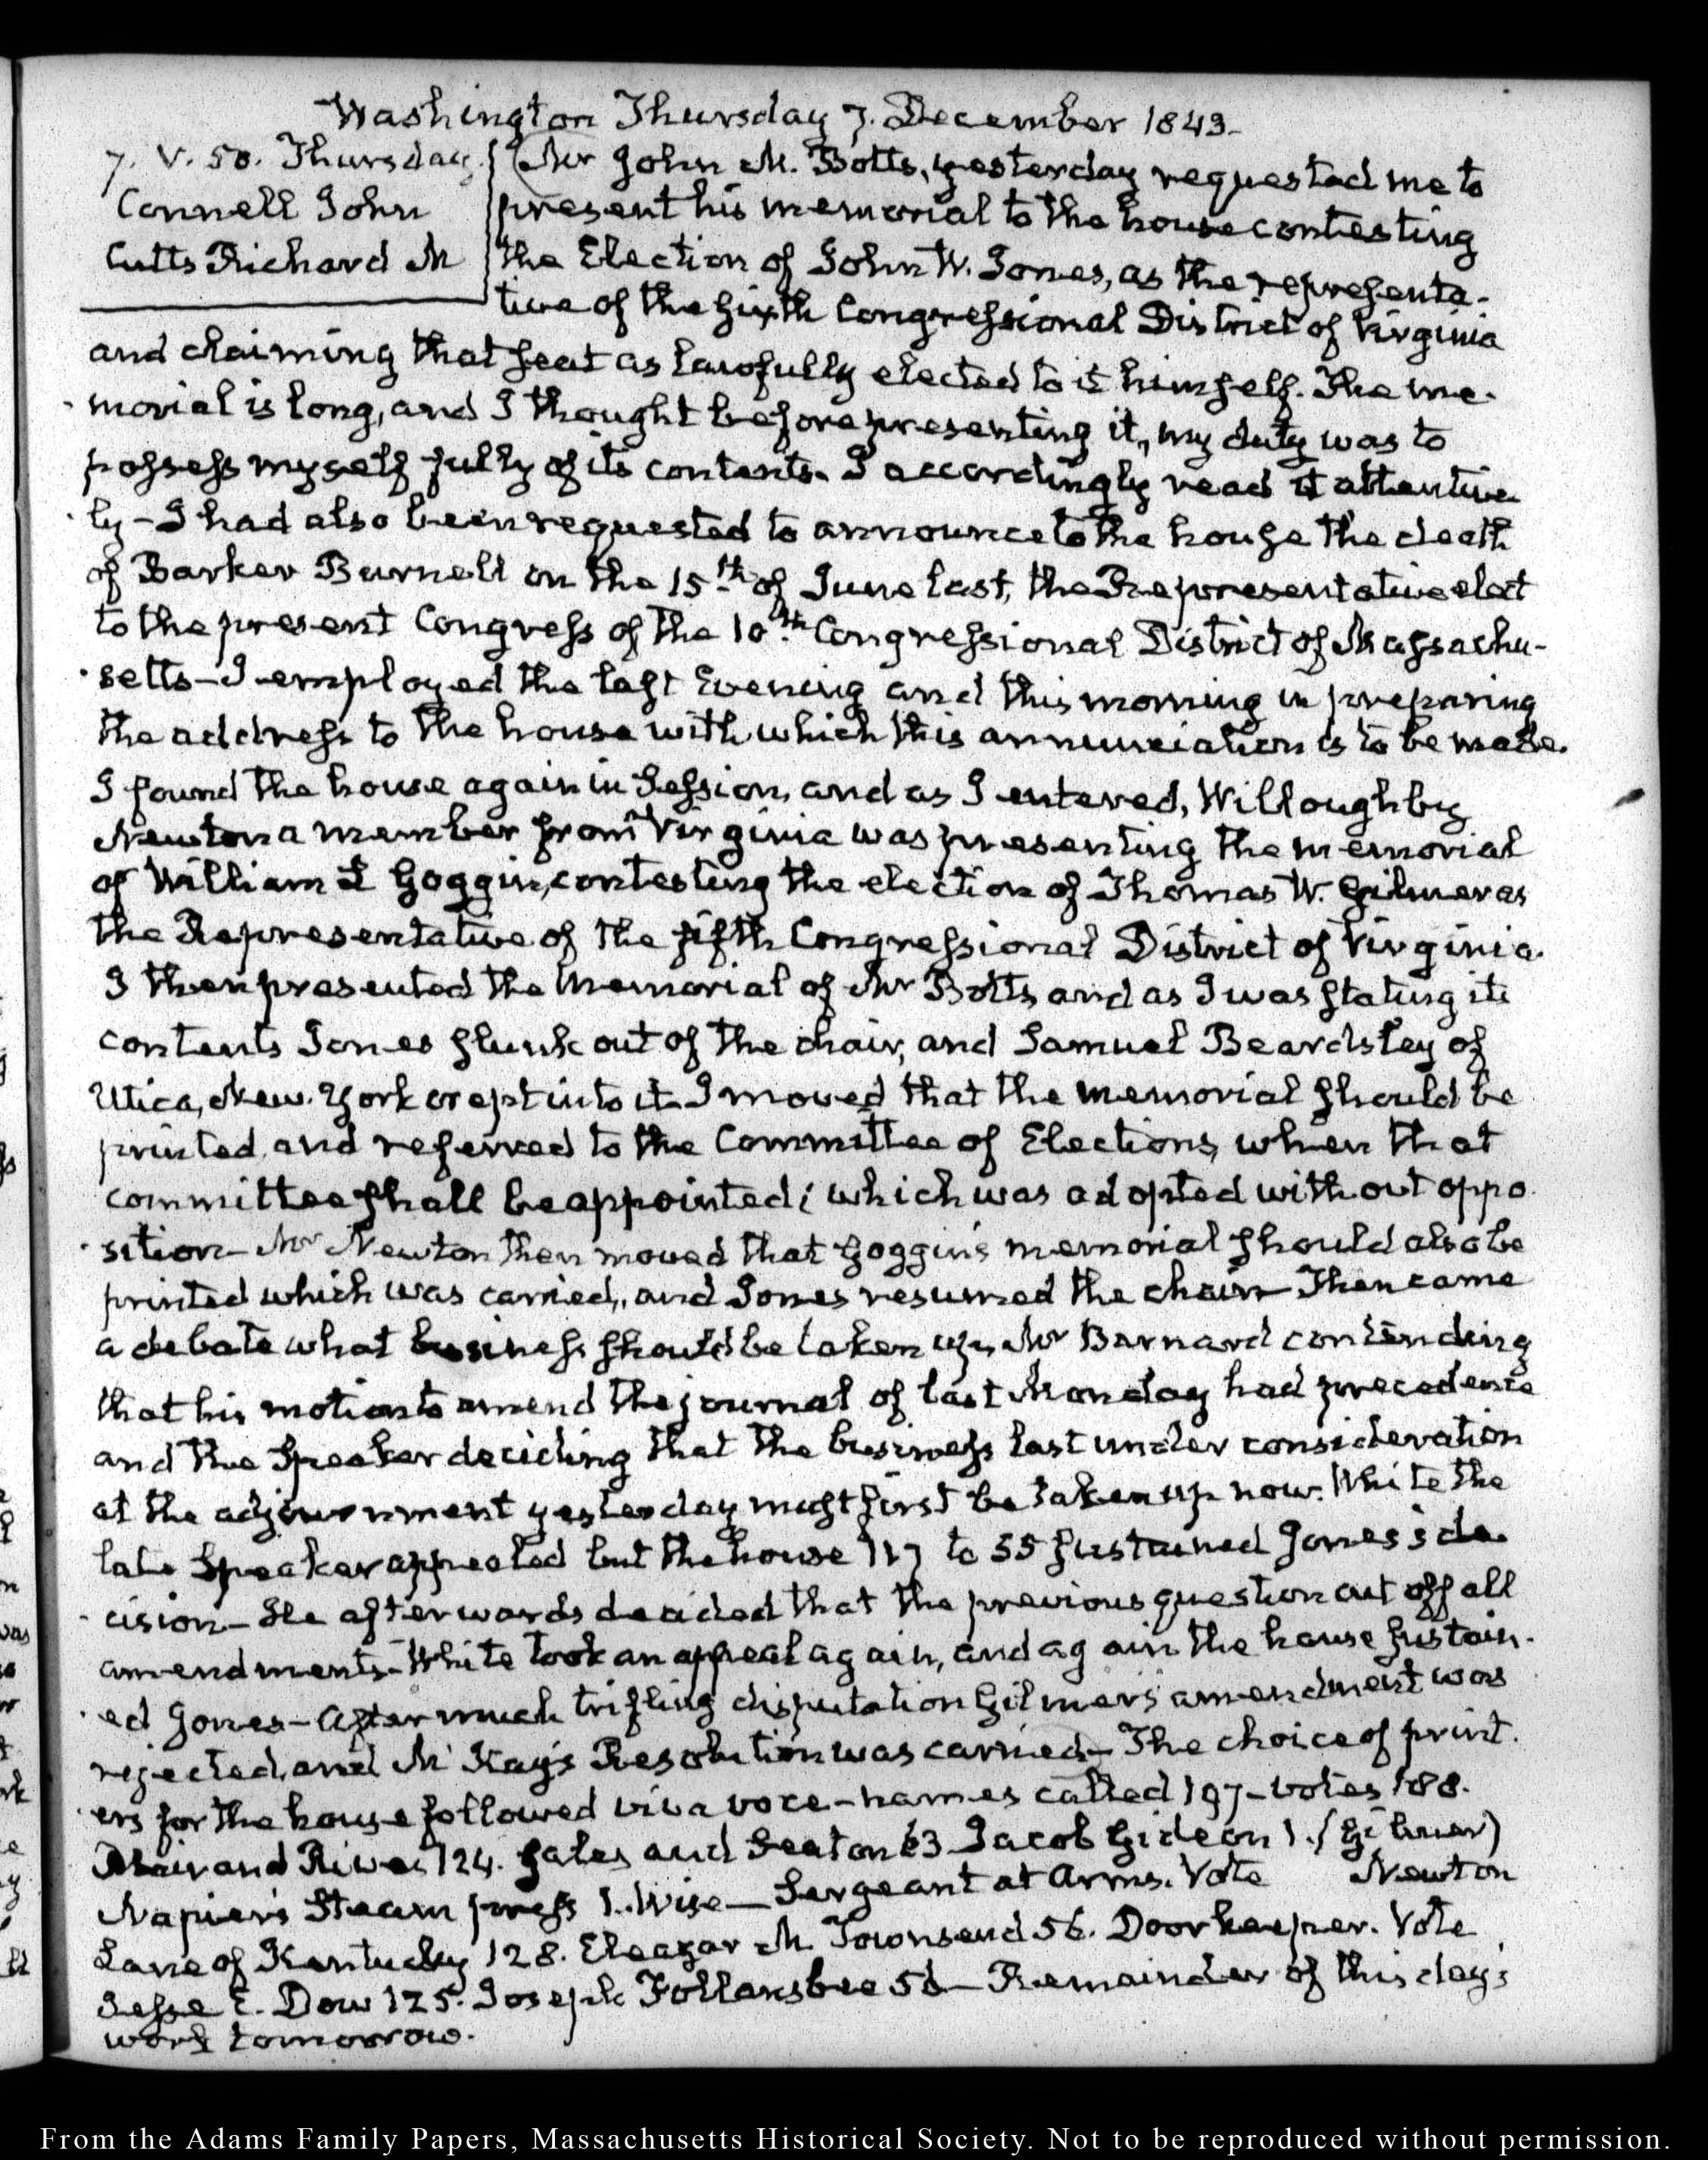 Washington Thursday 7. December 1843.
7. V. 50. Thursday.
Connell John
Cutts Richard M
Mr John M. Botts, yesterday requested me to
present his memorial to the house contesting
the Election of John W. Jones, as the representa-
tive of the sixth Congressional District of Virginia
and claiming that seat as lawfully elected to it himself. The me-
morial is long, and I thought before presenting it, my duty was to
possess myself fully of its contents. I accordingly read it attentive
ly - I had also been requested to announce to the house the death
of Barker Burnell on the 15th of June last, the Representative elect
to the present Congress of the 10th Congressional District of Massachu-
setts - I employed the last Evening and this morning in preparing
the address to the house with which this annunciation is to be made.
I found the house again in Session, and as I entered, Willoughby
Newton a member from Virginia was presenting the memorial
of William L Goggin, contesting the election of Thomas W. Gilmer as
the Representative of the fifth Congressional District of Virginia.
I then presented the Memorial of Mr Botts and as I was stating its
contents Jones slunk out of the chair, and Samuel Beardsley of
Utica, New-York crept into it. I moved that the memorial should be
printed, and referred to the Committee of Elections, when that
committee shall be appointed; which was adopted without oppo
sition - Mr Newton then moved that Goggin's memorial should also be
printed which was carried, and Jones resumed the chair - Then came
a debate what business should be taken up, Mr Barnard contending
that his motion to amend the journal of last Monday had precedence
and the Speaker deciding that the business last under consideration
at the adjournment yesterday must first be taken up now. White the
late Speaker appealed but the house 117 to 55 sustained Jones's de
cision - He afterwards decided that the previous question cut off all
amendments - White took an appeal again, and again the house sustain-
ed Jones - After much trifling disputation Gilmer's amendment was
rejected, and McKay's Resolution was carried - The choice of print-
ers for the house followed viva voce - names called 197 - votes 188.
Blair and Rives 124. Gales and Seaton 63 Jacob Gideon 1. (Gilmer)
Napier's Steam press 1. Wise - Sergeant at Arms. Vote Newton
Lane of Kentucky 128. Eleazar M. Townsend 56. Doorkeeper. Vote
Jesse E. Dow 125. Joseph Follansbee 56 - Remainder of this day's
work tomorrow.
From the Adams Family Papers, Massachusetts Historical Society. Not to be reproduced without permission.